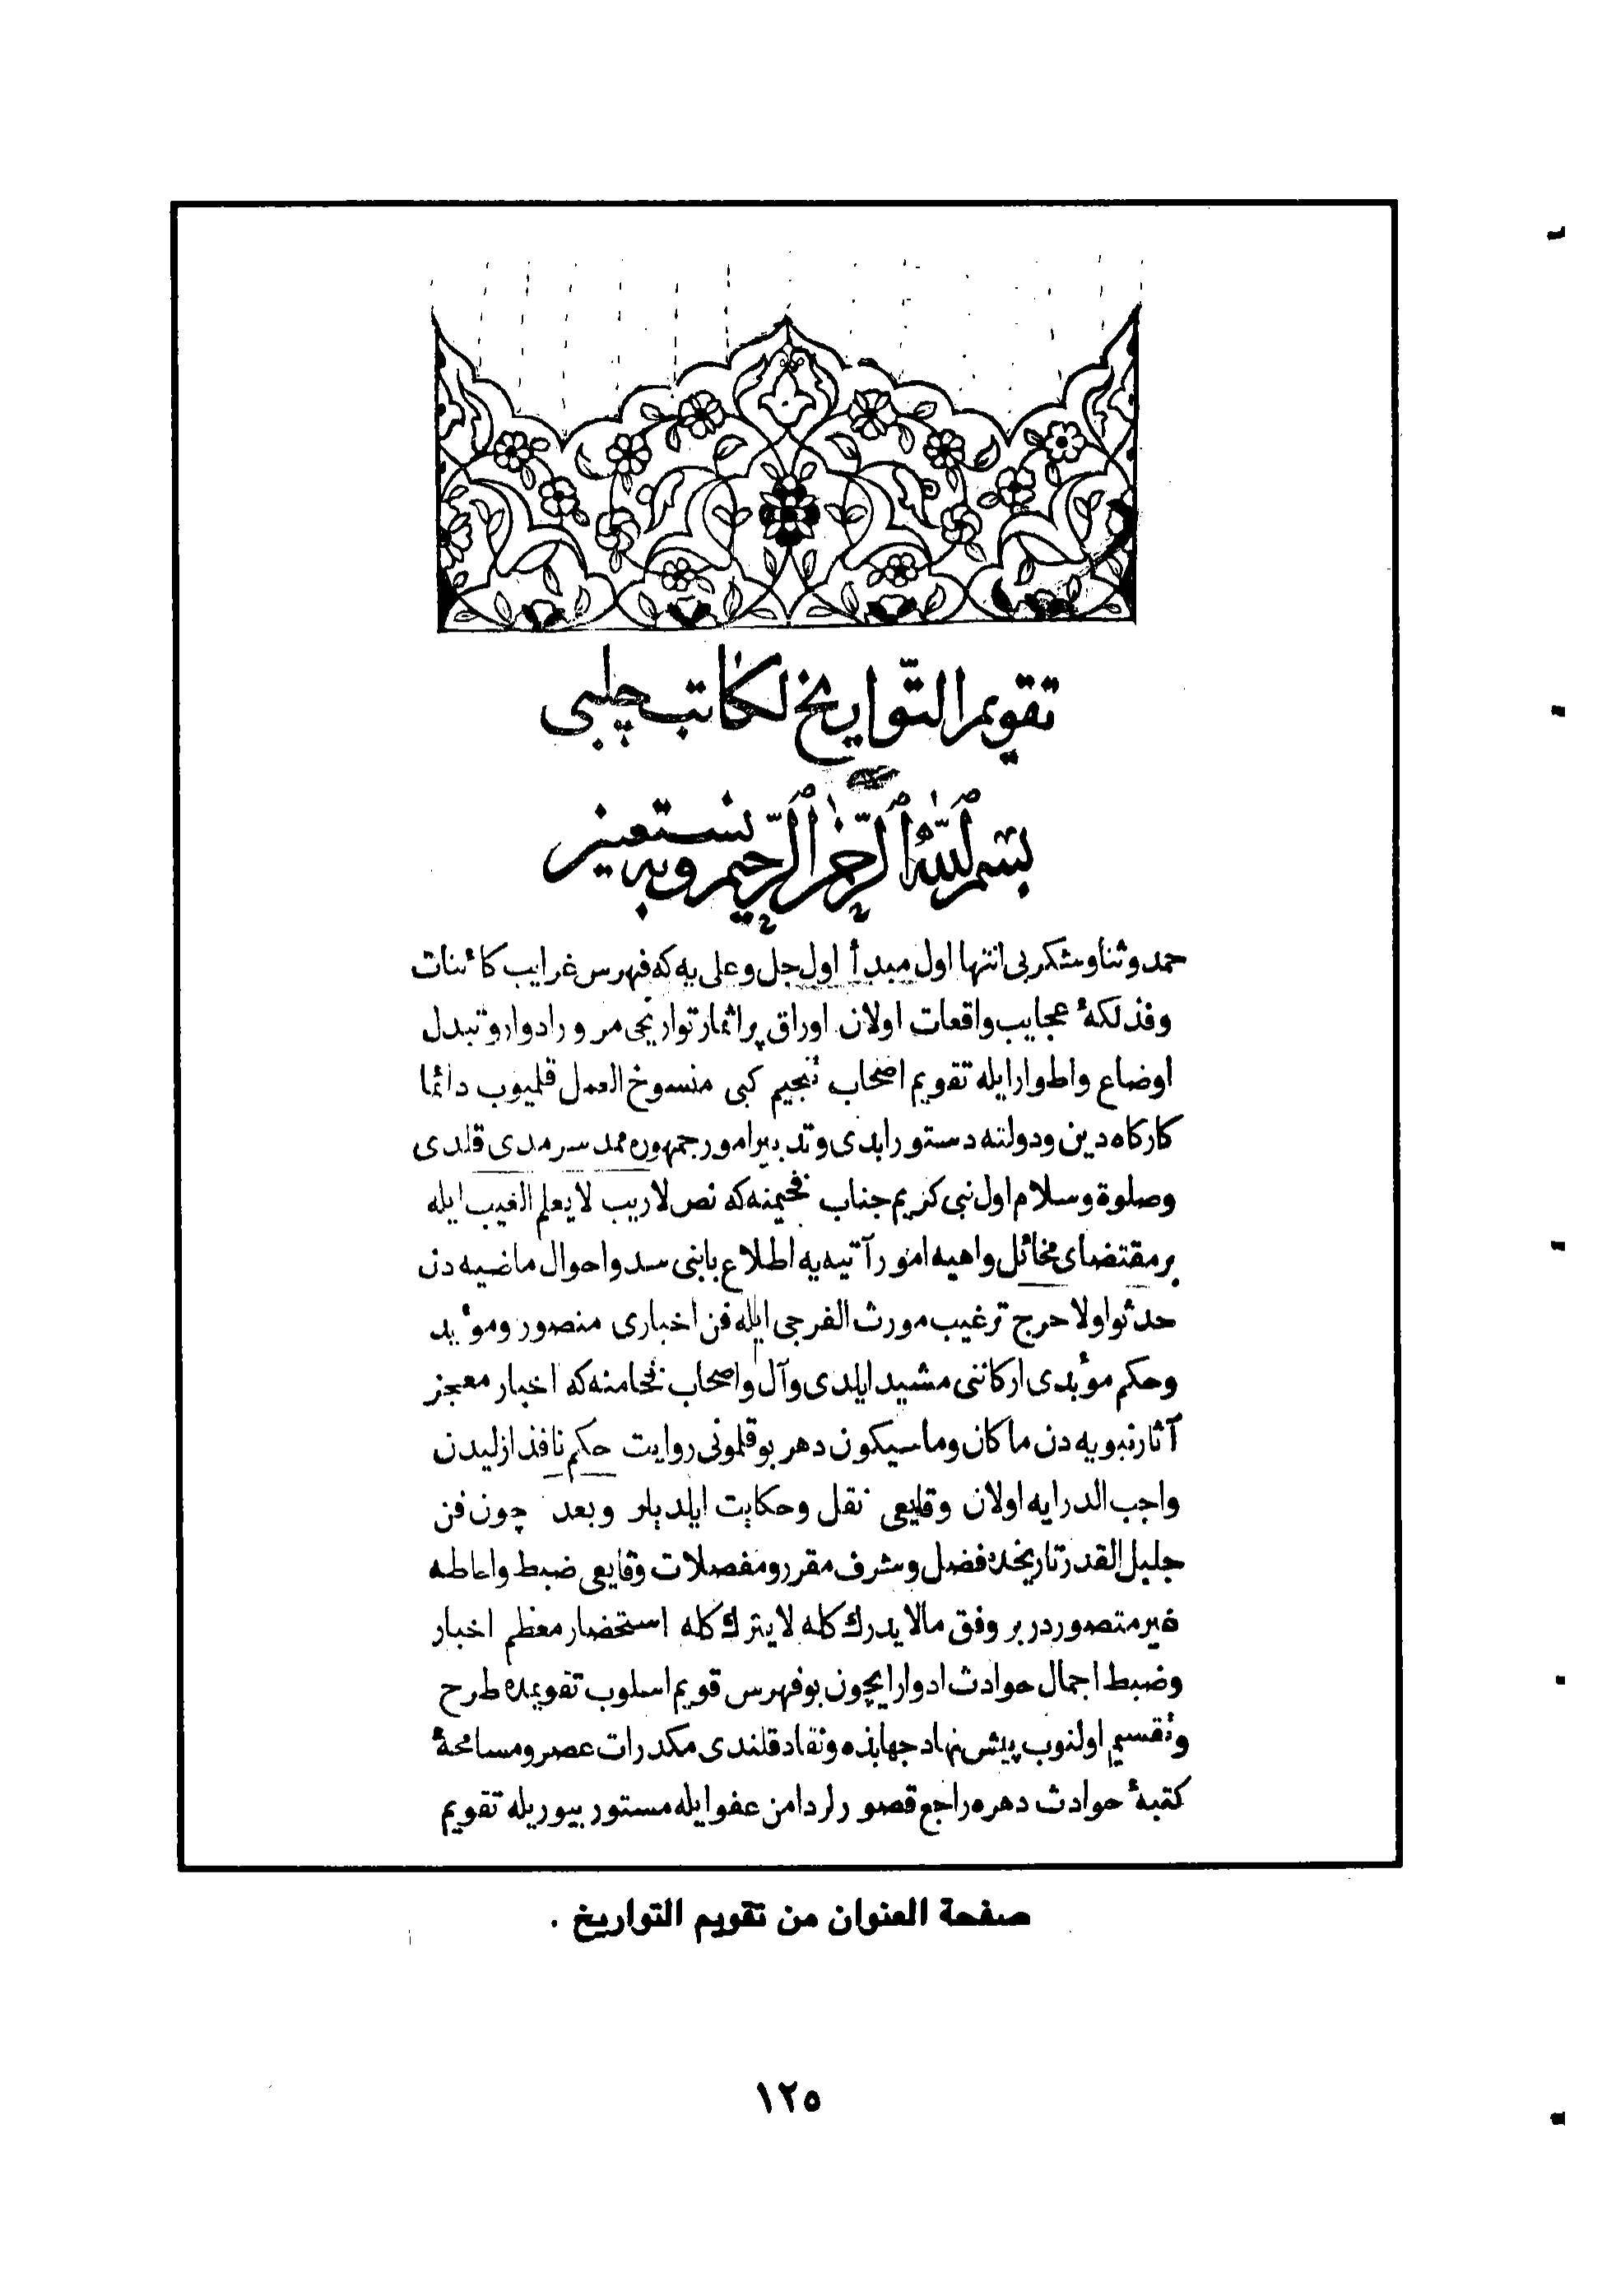 تقويم التّواريخ لكاتب چلبى
بسم الله الرّحمن الرّحيم وبه نستعين
حمد وثنا وشكر بى انتها اول مبدأ اول جل وعلى يه كه فهرس غرايب كائنات
وفذلكهٔ عجايب واقعات اولان اوراق پر اثمار تواريخى مرور ادوار وتبدل
اوضاع واطوار ايله تقويم اصحاب تنجيم كبى منسوخ العمل قلميوب دائما
كاركاه دين ودولته دستور ابدى وتدبير امور جمهوره ممد سرمدى قلدى
وصلوة وسلام اول نبى كريم جناب فخيمنه كه نص لاريب لا يعلم الغيب ايله
بر مقتضاى مخائل واهيه امور آتيه يه اطلاع بابنى سد واحوال ماضيه دن
حدثوا ولا حرج ترغيب مورث الفرجى ايله فن اخبارى منصور ومؤيد
وحكم مؤبدى اركاننى مشيد ايلدى وآل واصحاب فخامنه كه اخبار معجز
آثار نبويه دن ما كان وما سيكون دهر بوقلمونى روايت حكم نافذ ازليدن
واجب الدرايه اولان وقايعى نقل وحكايت ايلديلر وبعد چون فن
جليل القدر تاريخده فضل وشرف مقرر ومفصلات وقايعى ضبط واحاطه
غير متصور در بر وفق مالا يدرك كله لا يترك كله استحضار معظم اخبار
وضبط اجمال حوادث ادوار ايچون بو فهرس قويم اسلوب تقويمده طرح
وتقسيم اولنوب پيش نهاد جهابذه ونقاد قلندى مكدرات عصر ومسامحهٔ
كتبهٔ حوادث دهره راجع قصورلر دامن عفو ايله مستور بيوريله تقويم
صفحة العنوان من تقويم التواريخ .
١٢٥